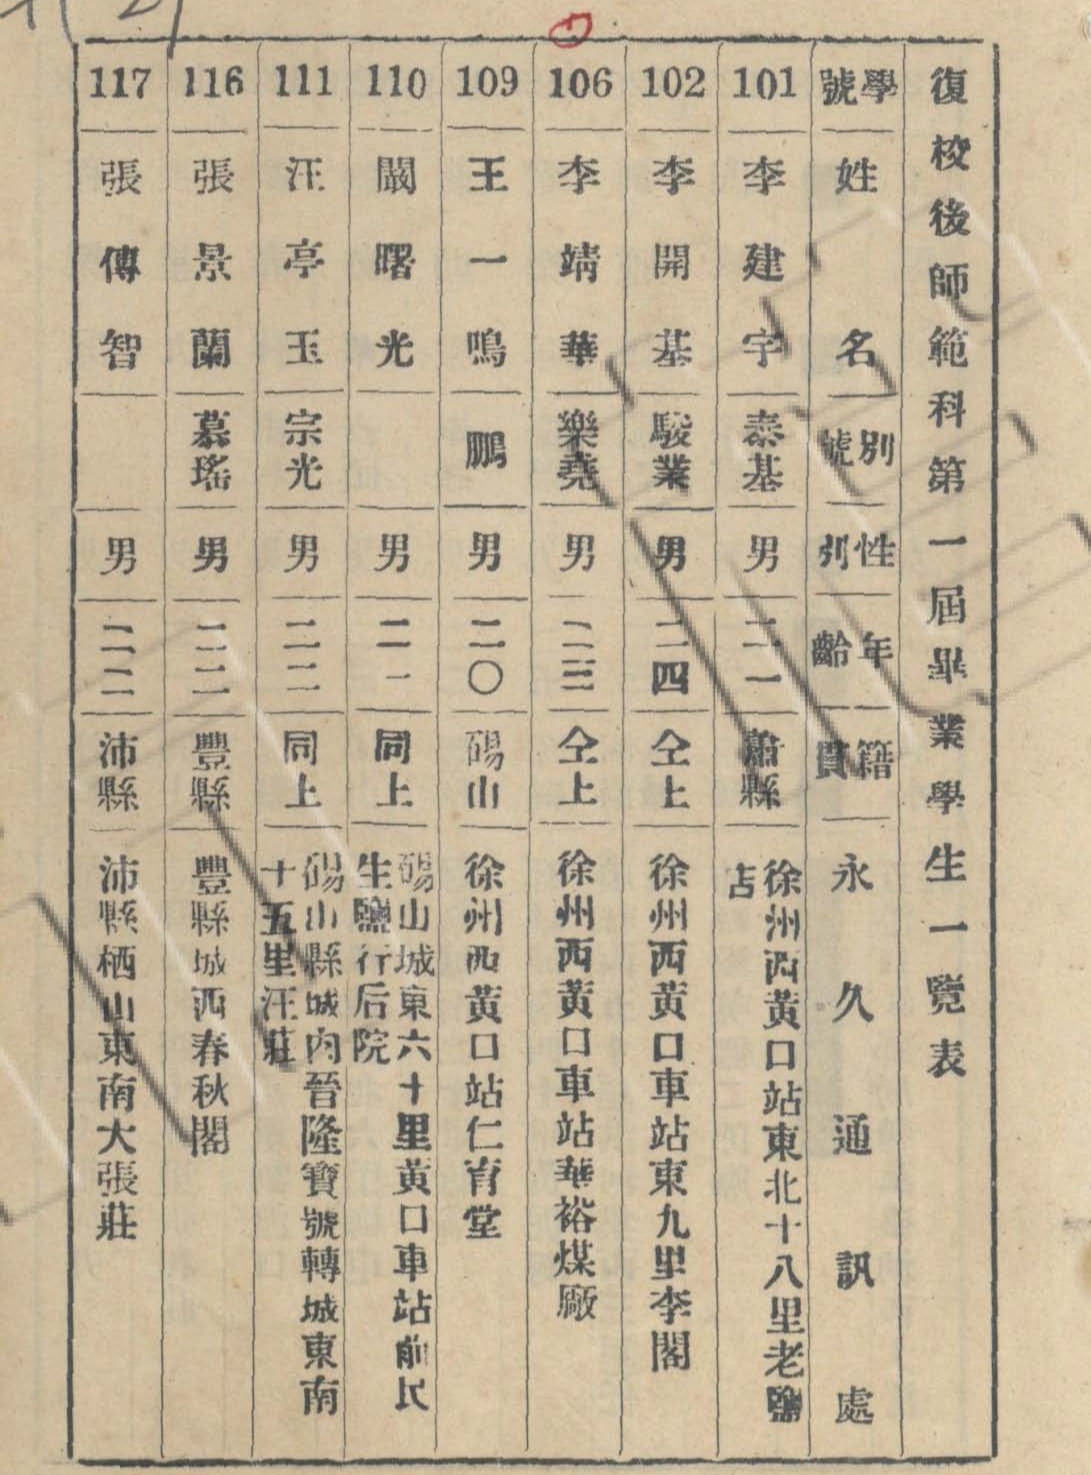 復校後師範科第一屆畢業學生一覽表
學號 姓名 別號 性別 年齡 籍貫 永久通訊處
101 李建宇 泰基 男 二一 蕭縣 徐州西黃口站東北十八里老鹽店
102 李開基 駿業 男 二四 仝上 徐州西黃口車站東九里李閣
106 李靖華 樂堯 男 二三 仝上 徐州西黃口車站華裕煤廠
109 王一鳴 鵬 男 二〇 碭山 徐州西黃口站仁育堂
110 閻曙光 男 二一 同上 碭山城東六十里黃口車站前民生鹽行后院
111 汪亭玉 宗光 男 二二 同上 碭山縣城內晉隆寶號轉城東南十五里汪莊
116 張景蘭 慕瑤 男 二二 豐縣 豐縣城西春秋閣
117 張傳智 男 二二 沛縣 沛縣栖山東南大張莊